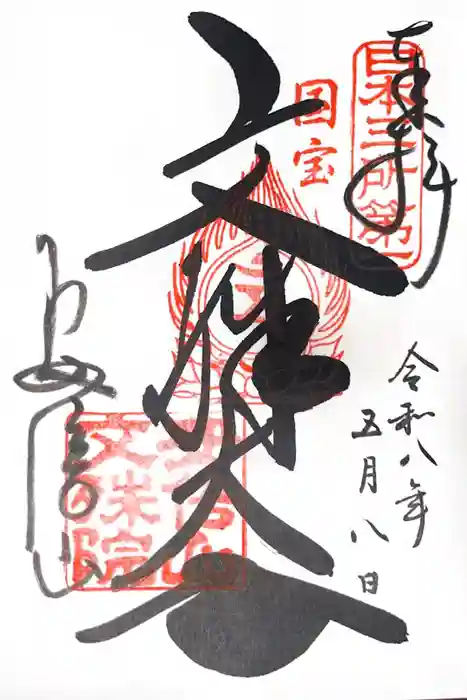 奉拝
日本三所第一
国宝
文殊
令和八年
五月八日
安倍山
文殊院